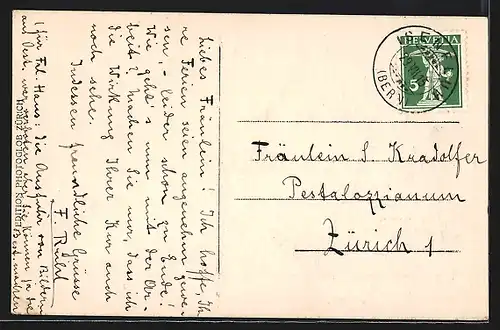 Liebes Fräulein! Ich hoffe Ih-
re Ferien seien angenehm gewe-
sen, - leider schon zu Ende!
Wie geht's nun mit der Ar-
beit? Machen Sie nur, dass ich
die Wirkung Ihrer Kur auch
noch sehe.
Indessen freundliche Grüsse
F. Rühl
(für Frl. Haus. die Ausfuhr von Bildern
HELVETIA
5
(BERN)
Fräulein S. Kradolfer
Pestalozzianum
Zürich 1